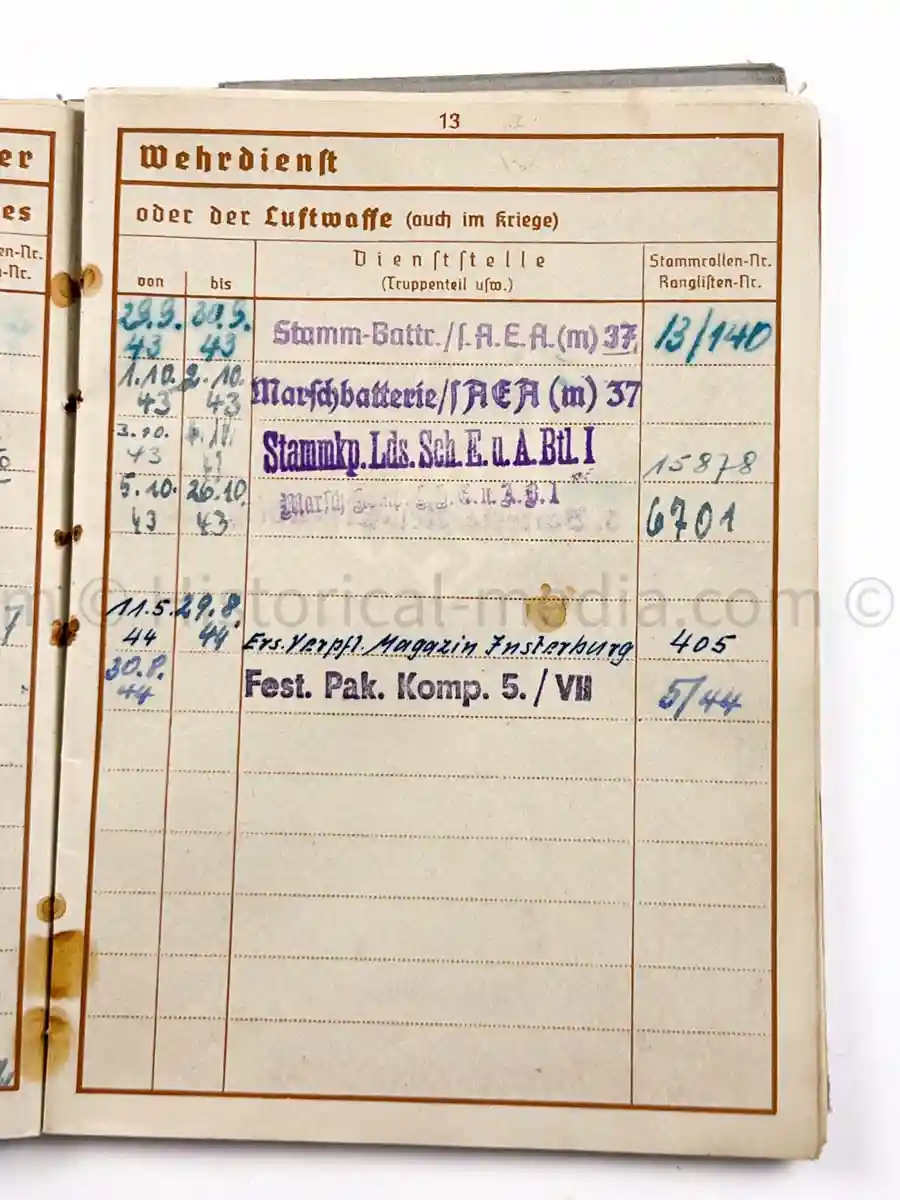 13
er
Wehrdienst
es
oder der Luftwaffe (auch im Kriege)
en-Nr.
-Nr.
von
bis
Dienststelle
(Truppenteil usw.)
Stammrollen-Nr.
Ranglisten-Nr.
29.9. 30.9.
43 43
Stamm-Battr./s.A.E.A.(m) 37
13/140
1.10. 2.10.
43 43
Marschbatterie/s AEA (m) 37
3.10.
43 43
Stammkp. Lds. Sch. E. u. A. Btl. I
15878
5.10. 26.10.
43 43
Marsch E.u.A.B.I
6701
m © Historical-media.com ©
7
11.5. 29.8.
44 44
Ers. Verpfl. Magazin Insterburg
405
30.8.
44
Fest. Pak. Komp. 5. / VII
5/44